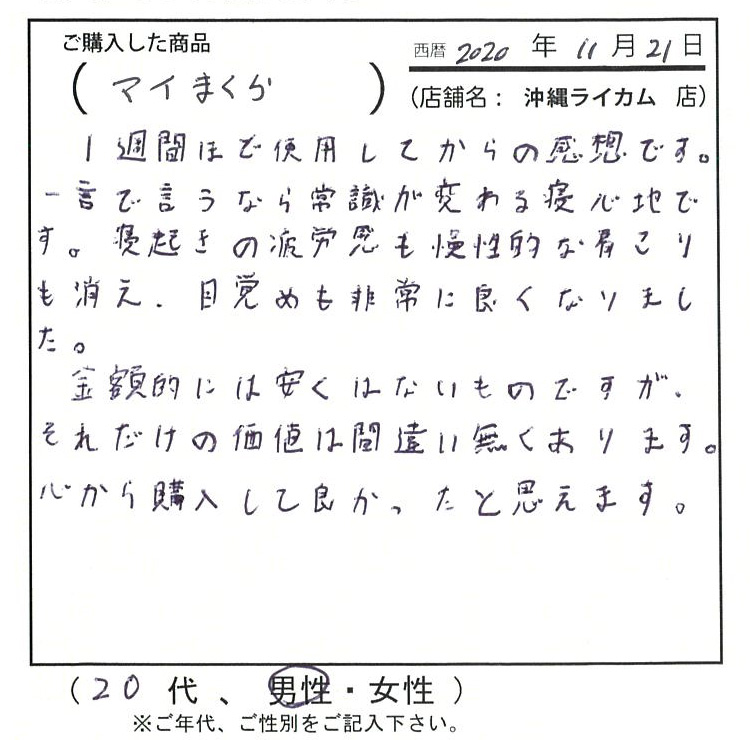 ご購入した商品
西暦 2020 年 11 月 21 日
(マイまくら)
(店舗名: 沖縄ライカム 店)
1週間ほど使用してからの感想です。
一言で言うなら常識が変わる寝心地で
す。寝起きの疲労感も慢性的な肩こり
も消え、目覚めも非常に良くなりまし
た。
金額的には安くはないものですが、
それだけの価値は間違い無くあります。
心から購入して良かったと思えます。
(20 代、男性・女性)
※ご年代、ご性別をご記入下さい。